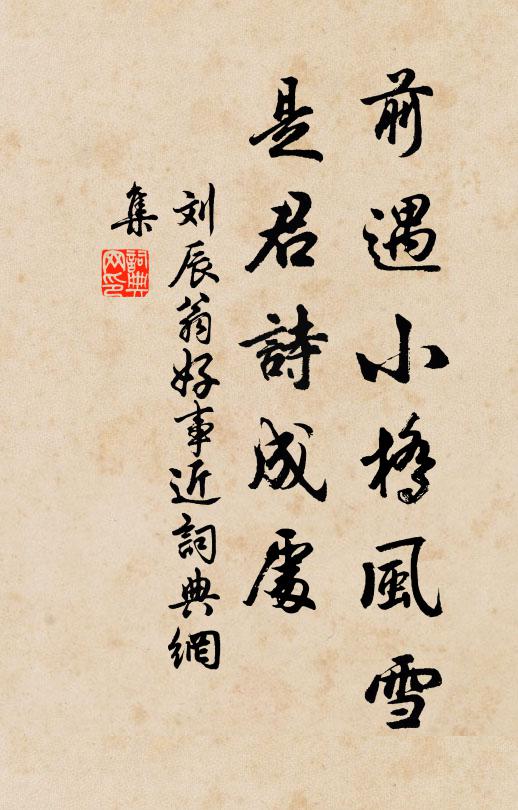 前遇小橋風雪
是君詩成處
刘辰翁好事近詞典網
集
詞典網印